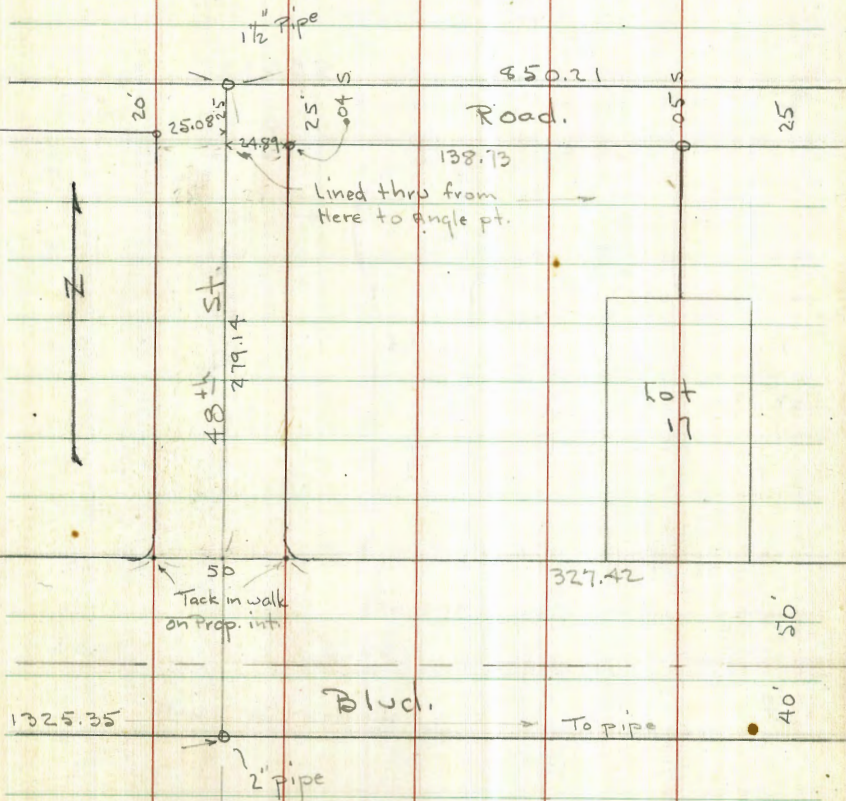 1½" Pipe
850.21
20'
25.08
25'
25'
.04 S
Road.
.05 S
25
24.89
138.73
Lined thru from
Here to Angle pt.
N
48th St.
279.14
Lot
17
50
327.42
Tack in walk
on Prop. int.
50'
Blvd.
1325.35
To pipe
40'
2" pipe